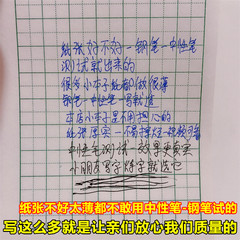 纸张好不好一钢笔一中性笔
测试就出来的
很多小本子纸都做很薄
钢笔一中性笔一写就渣
本店小本子是不用担心的
纸张厚实一不易撑烂一挖破等
中性笔测试一效果更实
小朋友写字好字就选它
纸张不好太薄都不敢用中性笔-钢笔试的
写这么多就是让亲们放心我们质量的